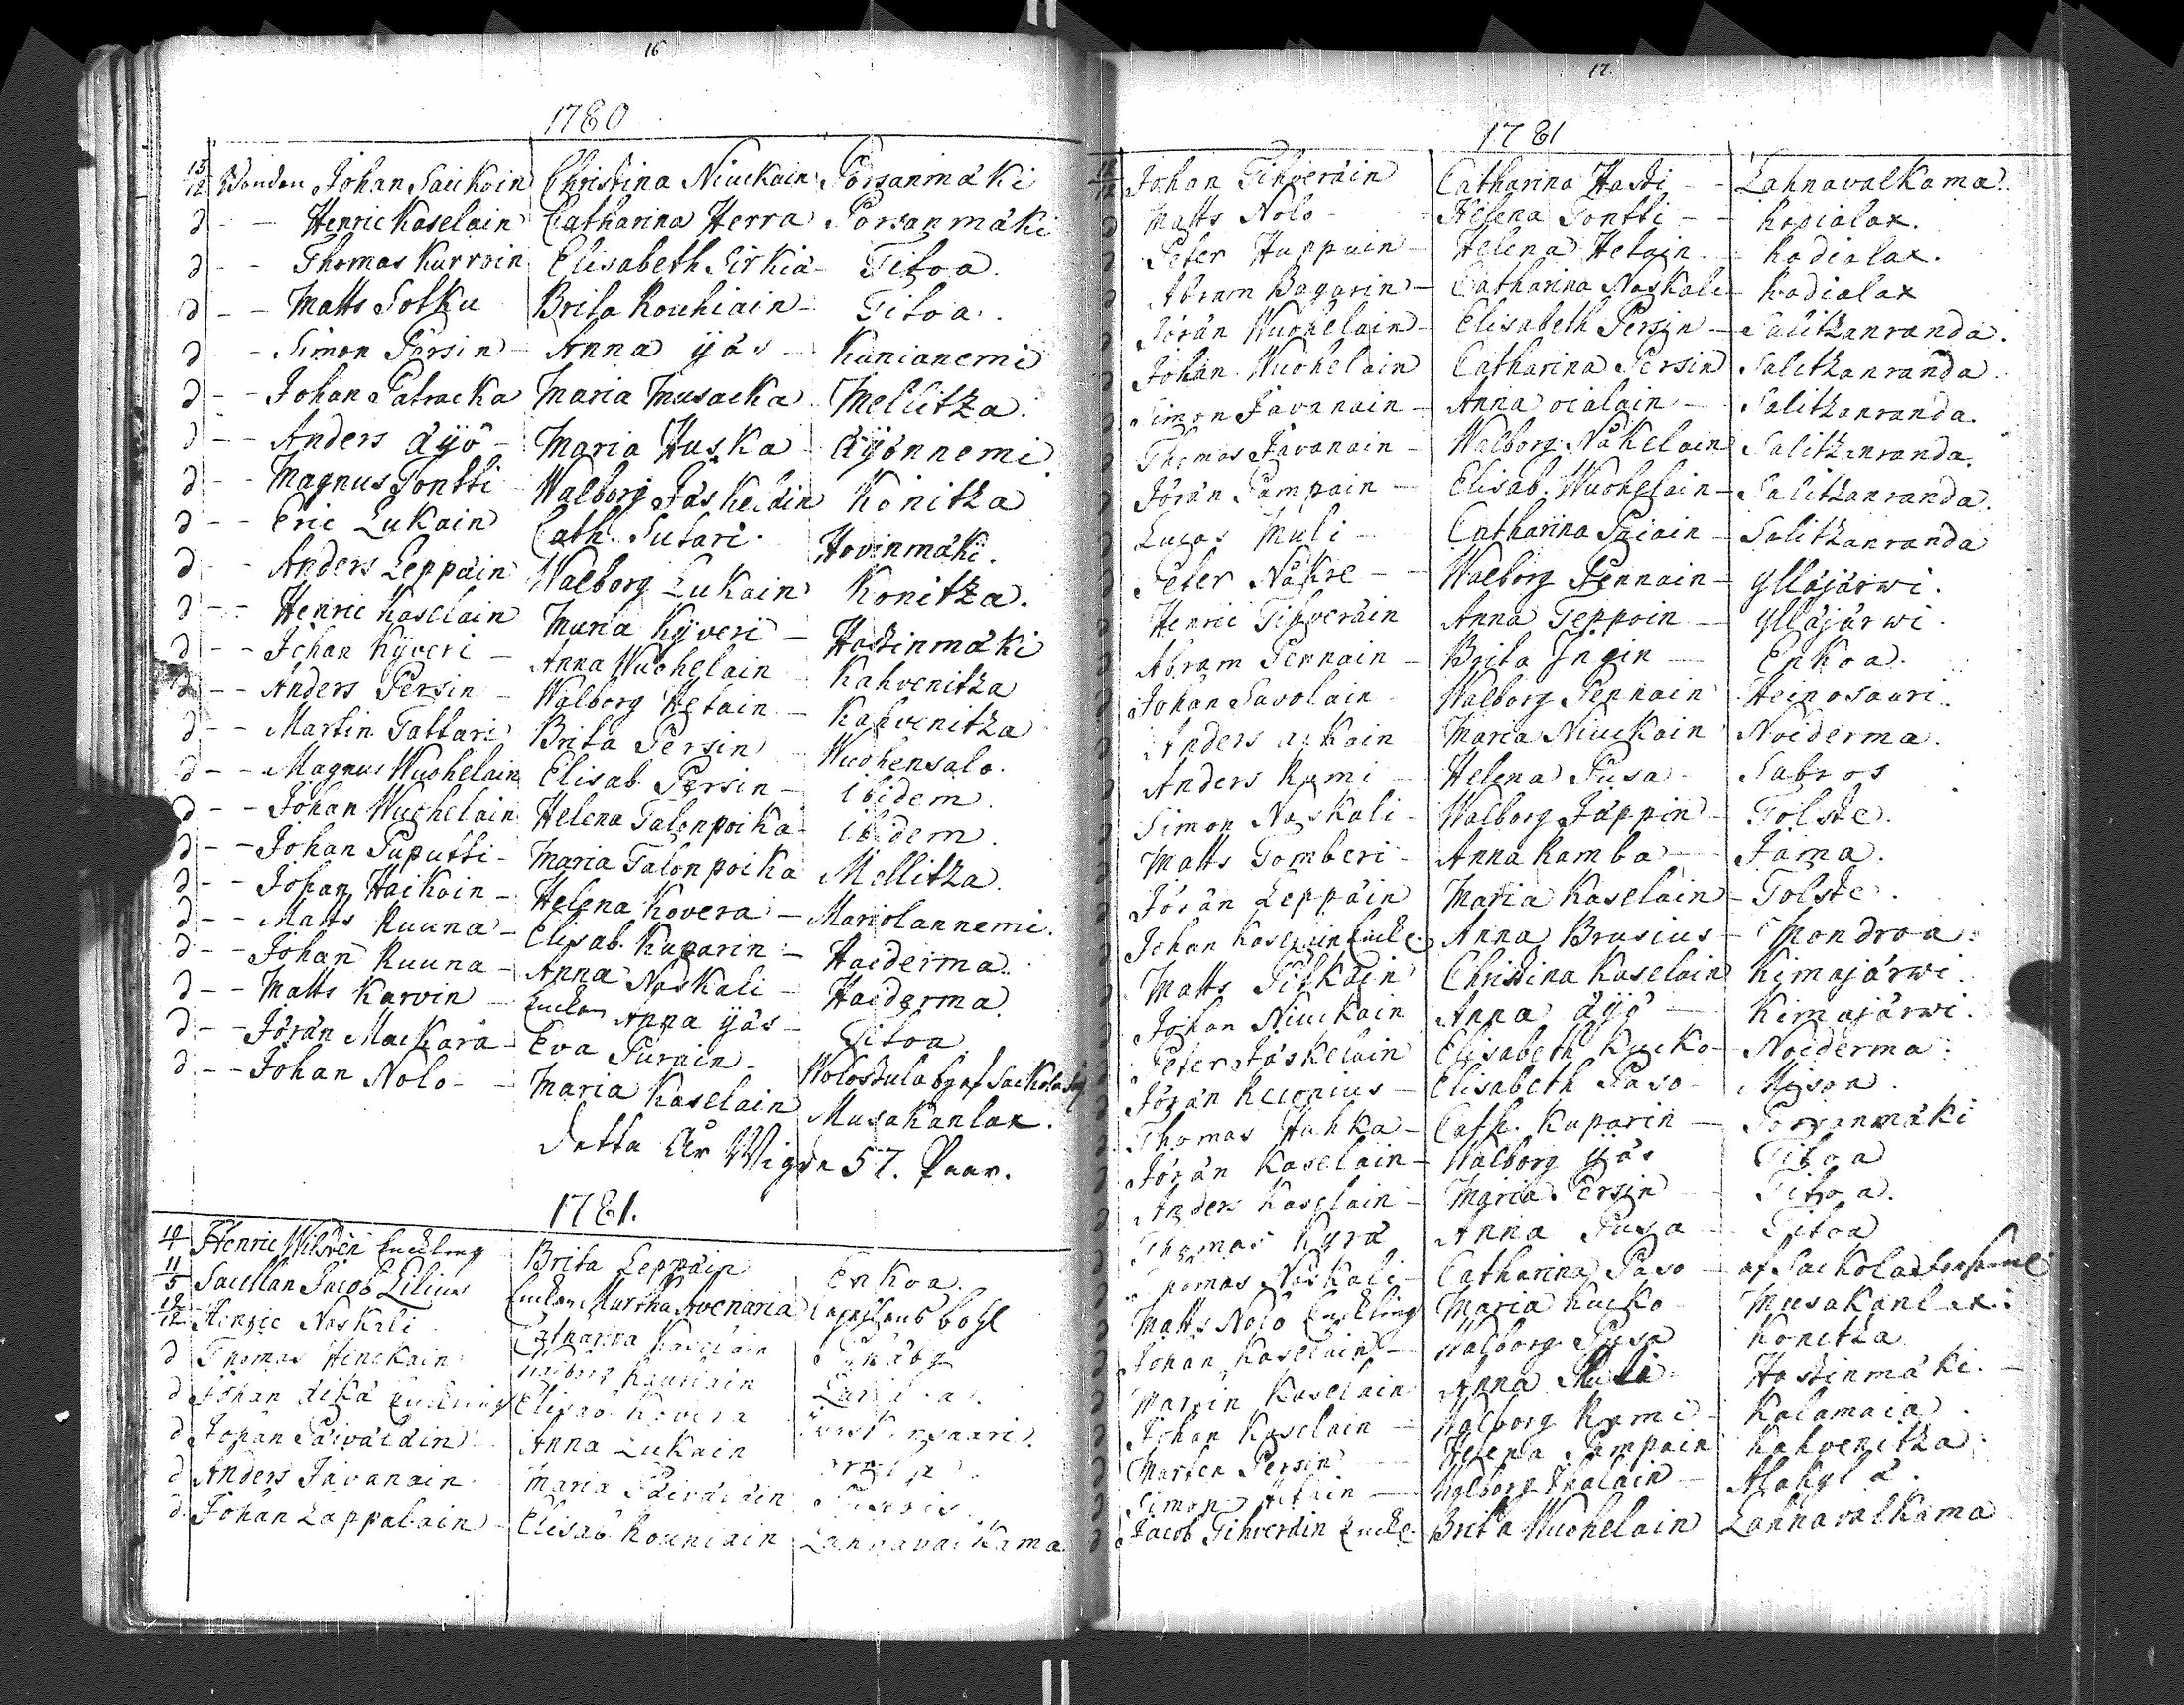 16
1780
13/12 Bonden Johan Saickoin Christina Niuckain Porsanmäki
d - - Henric Kaselain Catharina Herra Porsanmäki
d - - Thomas Kurroin Elisabeth Sirkiä - Titoa.
d - - Matts Sotku Brita Rouhiain - Titoa.
d - - Simon Pärsin - Anna Yjäs - Kunianemi
d - - Johan Patracka Maria Musacka Mellitza.
d - - Anders Äyö - Maria Huska Äyönnemi
d - - Magnus Tontti Walborg Jäskeläin Konitza
d - - Eric Lukain Cath. Sutari. Hovinmäki.
d - - Anders Leppäin Walborg Lukain Konitza.
d - - Henric Kaselain Maria Kyveri - Hastinmäki
d - - Johan Kyveri - Anna Wuohelain Kahvenitza
d - - Anders Persin - Walborg Hetain - Kahvenitza
d - - Martin Tattari Brita Persin Wuohensalo.
d - - Magnus Wuohelain Elisab. Persin - ibidem.
d - - Johan Wuohelain Helena Talonpoika ibidem.
d - - Johan Puputti - Maria Talonpoika Mellitza.
d - - Johan Haikoin - Helena Kovera - Mariolannemi.
d - - Matts Ruuna - Elisab. Kuparin - Haiderma.
d - - Johan Ruuna - Anna Naskali - Haiderma.
d - - Matts Karvin - Enckan Anna Yjäs - Titoa
d - - Jörän Mackara - Eva Purain - Wolostula by af Sackola
d - - Johan Nolo - - Maria Kaselain Musakanlax.
detta År Wigde 57. Paar.
1781.
Henric Wilstén Enckling Brita Leppäin Enkoa.
11/5 Sacellan Jacob Lilius Enckan Martha Avenaria Capellans bohl
Henric Naskali Catharina Kaselain
d Thomas Hinckain Walborg Rauhiain
d Johan Äikä Enckling Elisab. Kovera
d Johan Päiväläin Anna Lukain
d Anders Jävanain Maria Päiväläin
d Johan Lappalain - Elisab. Rouhiain Lahnavalkama
17.
1781
Johan Tihveräin Catharina Hasti - - Lahnavalkama.
d Matts Nolo - - Helena Tontti - - Radialax.
d Peter Huppuin - Helena Hetain - Radialax.
d Abram Bagarin - Catharina Naskali - Radialax
d Jörän Wuohelain - Elisabeth Persin - Salitzanranda.
d Johan Wuohelain Catharina Persin Salitzanranda.
d Simon Jävanain - Anna Oialain - Salitzanranda.
d Thomas Jävanain - Walborg Näkelain Salitzanranda.
d Jörän Pampain - Elisab. Wuohelain - Salitzanranda.
d Lucas Muli - Catharina Paiain - Salitzanranda
d Peter Näkre - - Walborg Pennain - Ylläjärwi.
d Henric Tihveräin Anna Teppoin - Ylläjärwi.
d Abram Pennain - Brita Ingin - Enkoa.
d Johan Savolain - Walborg Pennain Heinosaari.
d Anders Maria Niuckain Noiderma.
d Anders Rami - Helena Pusa - Sabros
d Simon Naskali - Walborg Jäppin - Tolste.
d Matts Tomberi - Anna Ramba - Jama.
d Jörän Leppäin Maria Kaselain - Tolste.
d Johan Kaselain Enckl. Anna Brusius - Pondroa.
d Matts Pitkäin Christina Kaselain Kimajärwi.
d Johan Niuckain Anna Äyö - Kimajärwi.
d Peter Jäskeläin Elisabeth Kucko - Noiderma.
d Jörän Relonius - Elisabeth Paso - Misoa.
d Thomas Huhka - Cath. Kuparin - Porsanmäki
d Jörän Kaselain - Walborg Yjäs Titoa
d Anders Kaselain - Maria Persin - Titoa.
d Thomas Kyrä Anna Pusa - Titoa
Thomas Naskali - Catharina Paso - af Sackola
Matts Nolo Enckling Maria Kucko Musakanlax.
d Johan Kaselain - Walborg Pusa Konitza
d Martin Kaselain Anna Muli Hastinmäki. -
d Johan Kaselain - Walborg Rami - Kalamaia.
d Marten Persin - Helena Pampain Kahvenitza
d Simon Hetain - Walborg Ihalain - Alakylä.
d Jacob Tihveräin Enckl. Brita Wuohelain Lahnavalkama